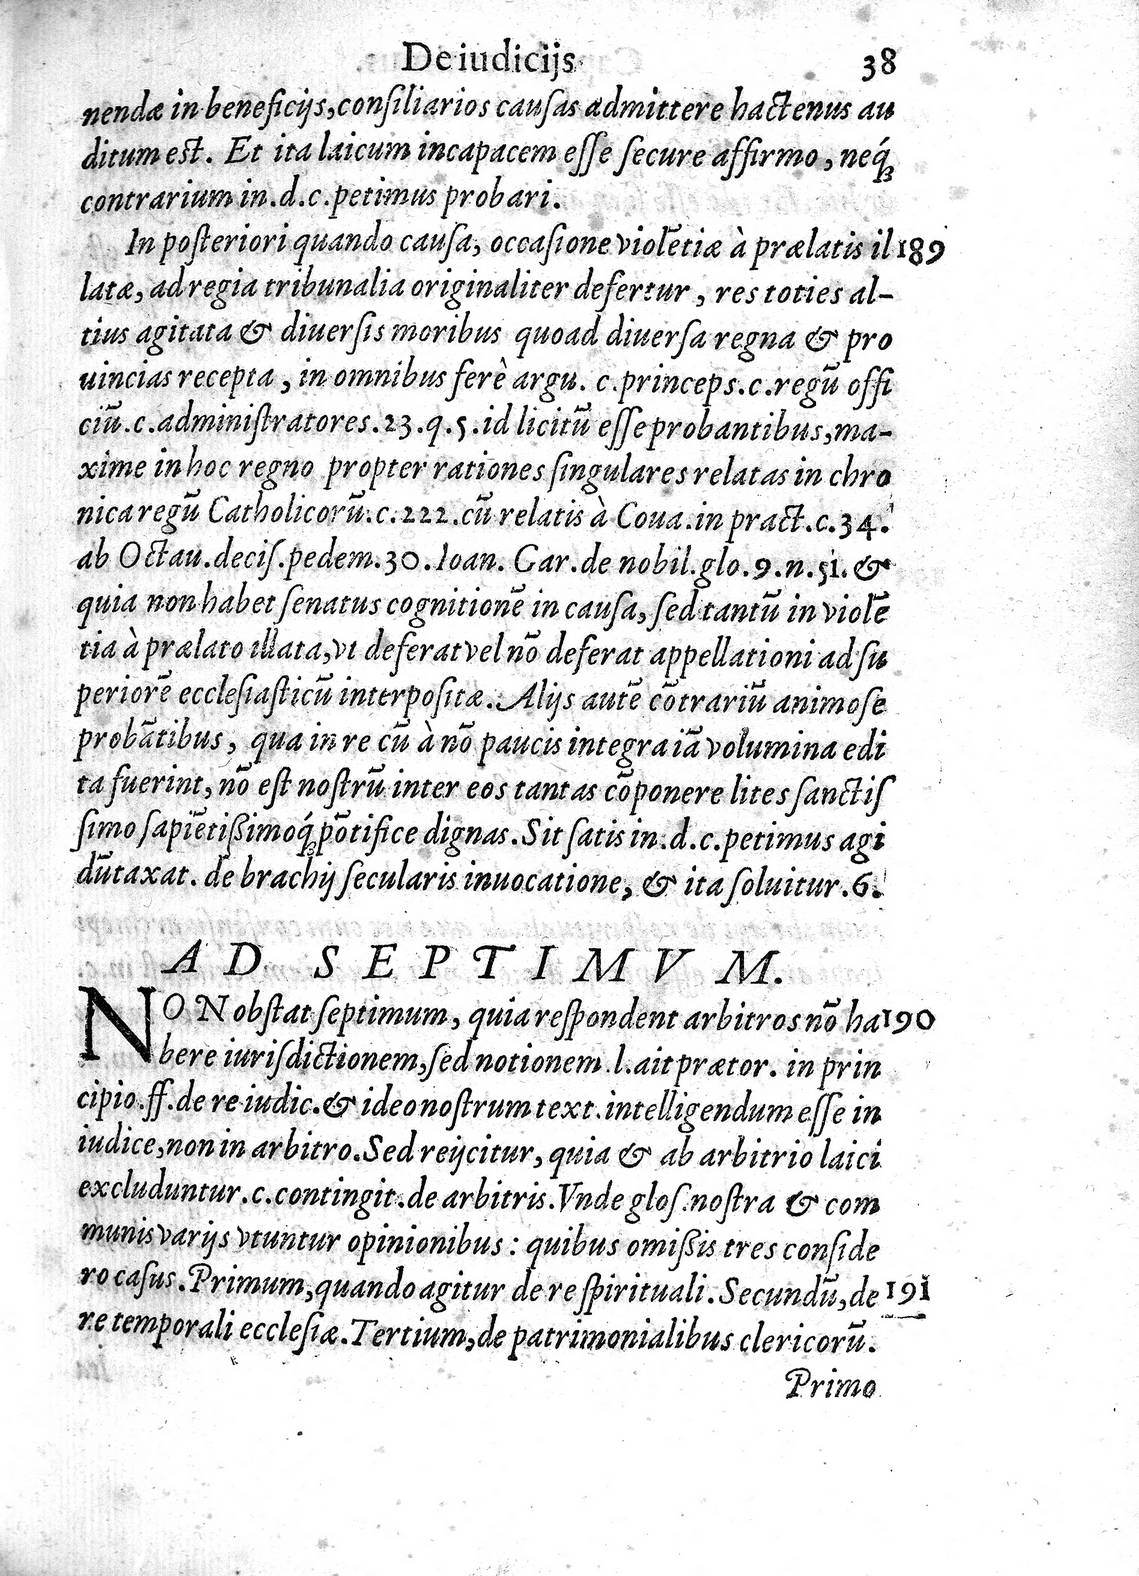 De iudicijs. 38
nendæ in beneficijs, consiliarios causas admittere hactenus au
ditum est. Et ita laicum incapacem esse secure affirmo, neq́;
contrarium in.d.c.petimus probari.
In posteriori quando causa, occasione violẽtiæ à prælatis il 189
latæ, ad regia tribunalia originaliter defertur, res toties al-
tius agitata & diuersis moribus quoad diuersa regna & pro
uincias recepta, in omnibus ferè argu. c.princeps.c.regũ offi
ciũ.c.administratores.23.q.5.id licitũ esse probantibus, ma-
xime in hoc regno propter rationes singulares relatas in chro
nica regũ Catholicorũ.c.222.cũ relatis à Coua.in pract.c.34.
ab Octau.decis.pedem.30.Ioan. Gar.de nobil.glo.9.n.51.&
quia non habet senatus cognitionẽ in causa, sed tantũ in violẽ
tia à prælato illata, vt deferat vel nõ deferat appellationi ad su
periorẽ ecclesiasticũ interpositæ. Alijs autẽ cõtrariũ animose
probãtibus, qua in re cũ à nõ paucis integra iã volumina edi
ta fuerint, nõ est nostrũ inter eos tantas cõponere lites sanctis
simo sapiẽtißimoq́; põtifice dignas. Sit satis in.d.c.petimus agi
dũtaxat. de brachij secularis inuocatione, & ita soluitur.6.
AD SEPTIMVM.
NON obstat septimum, quia respondent arbitros nõ ha 190
bere iurisdictionem, sed notionem.l.ait prætor. in prin
cipio.ff.de re iudic.& ideo nostrum text.intelligendum esse in
iudice, non in arbitro. Sed reijcitur, quia & ab arbitrio laici
excluduntur.c.contingit.de arbitris.Vnde glos.nostra & com
munis varijs vtuntur opinionibus: quibus omißis tres conside
ro casus. Primum, quando agitur de re spirituali. Secundũ, de 191
re temporali ecclesiæ. Tertium, de patrimonialibus clericorũ.
Primo